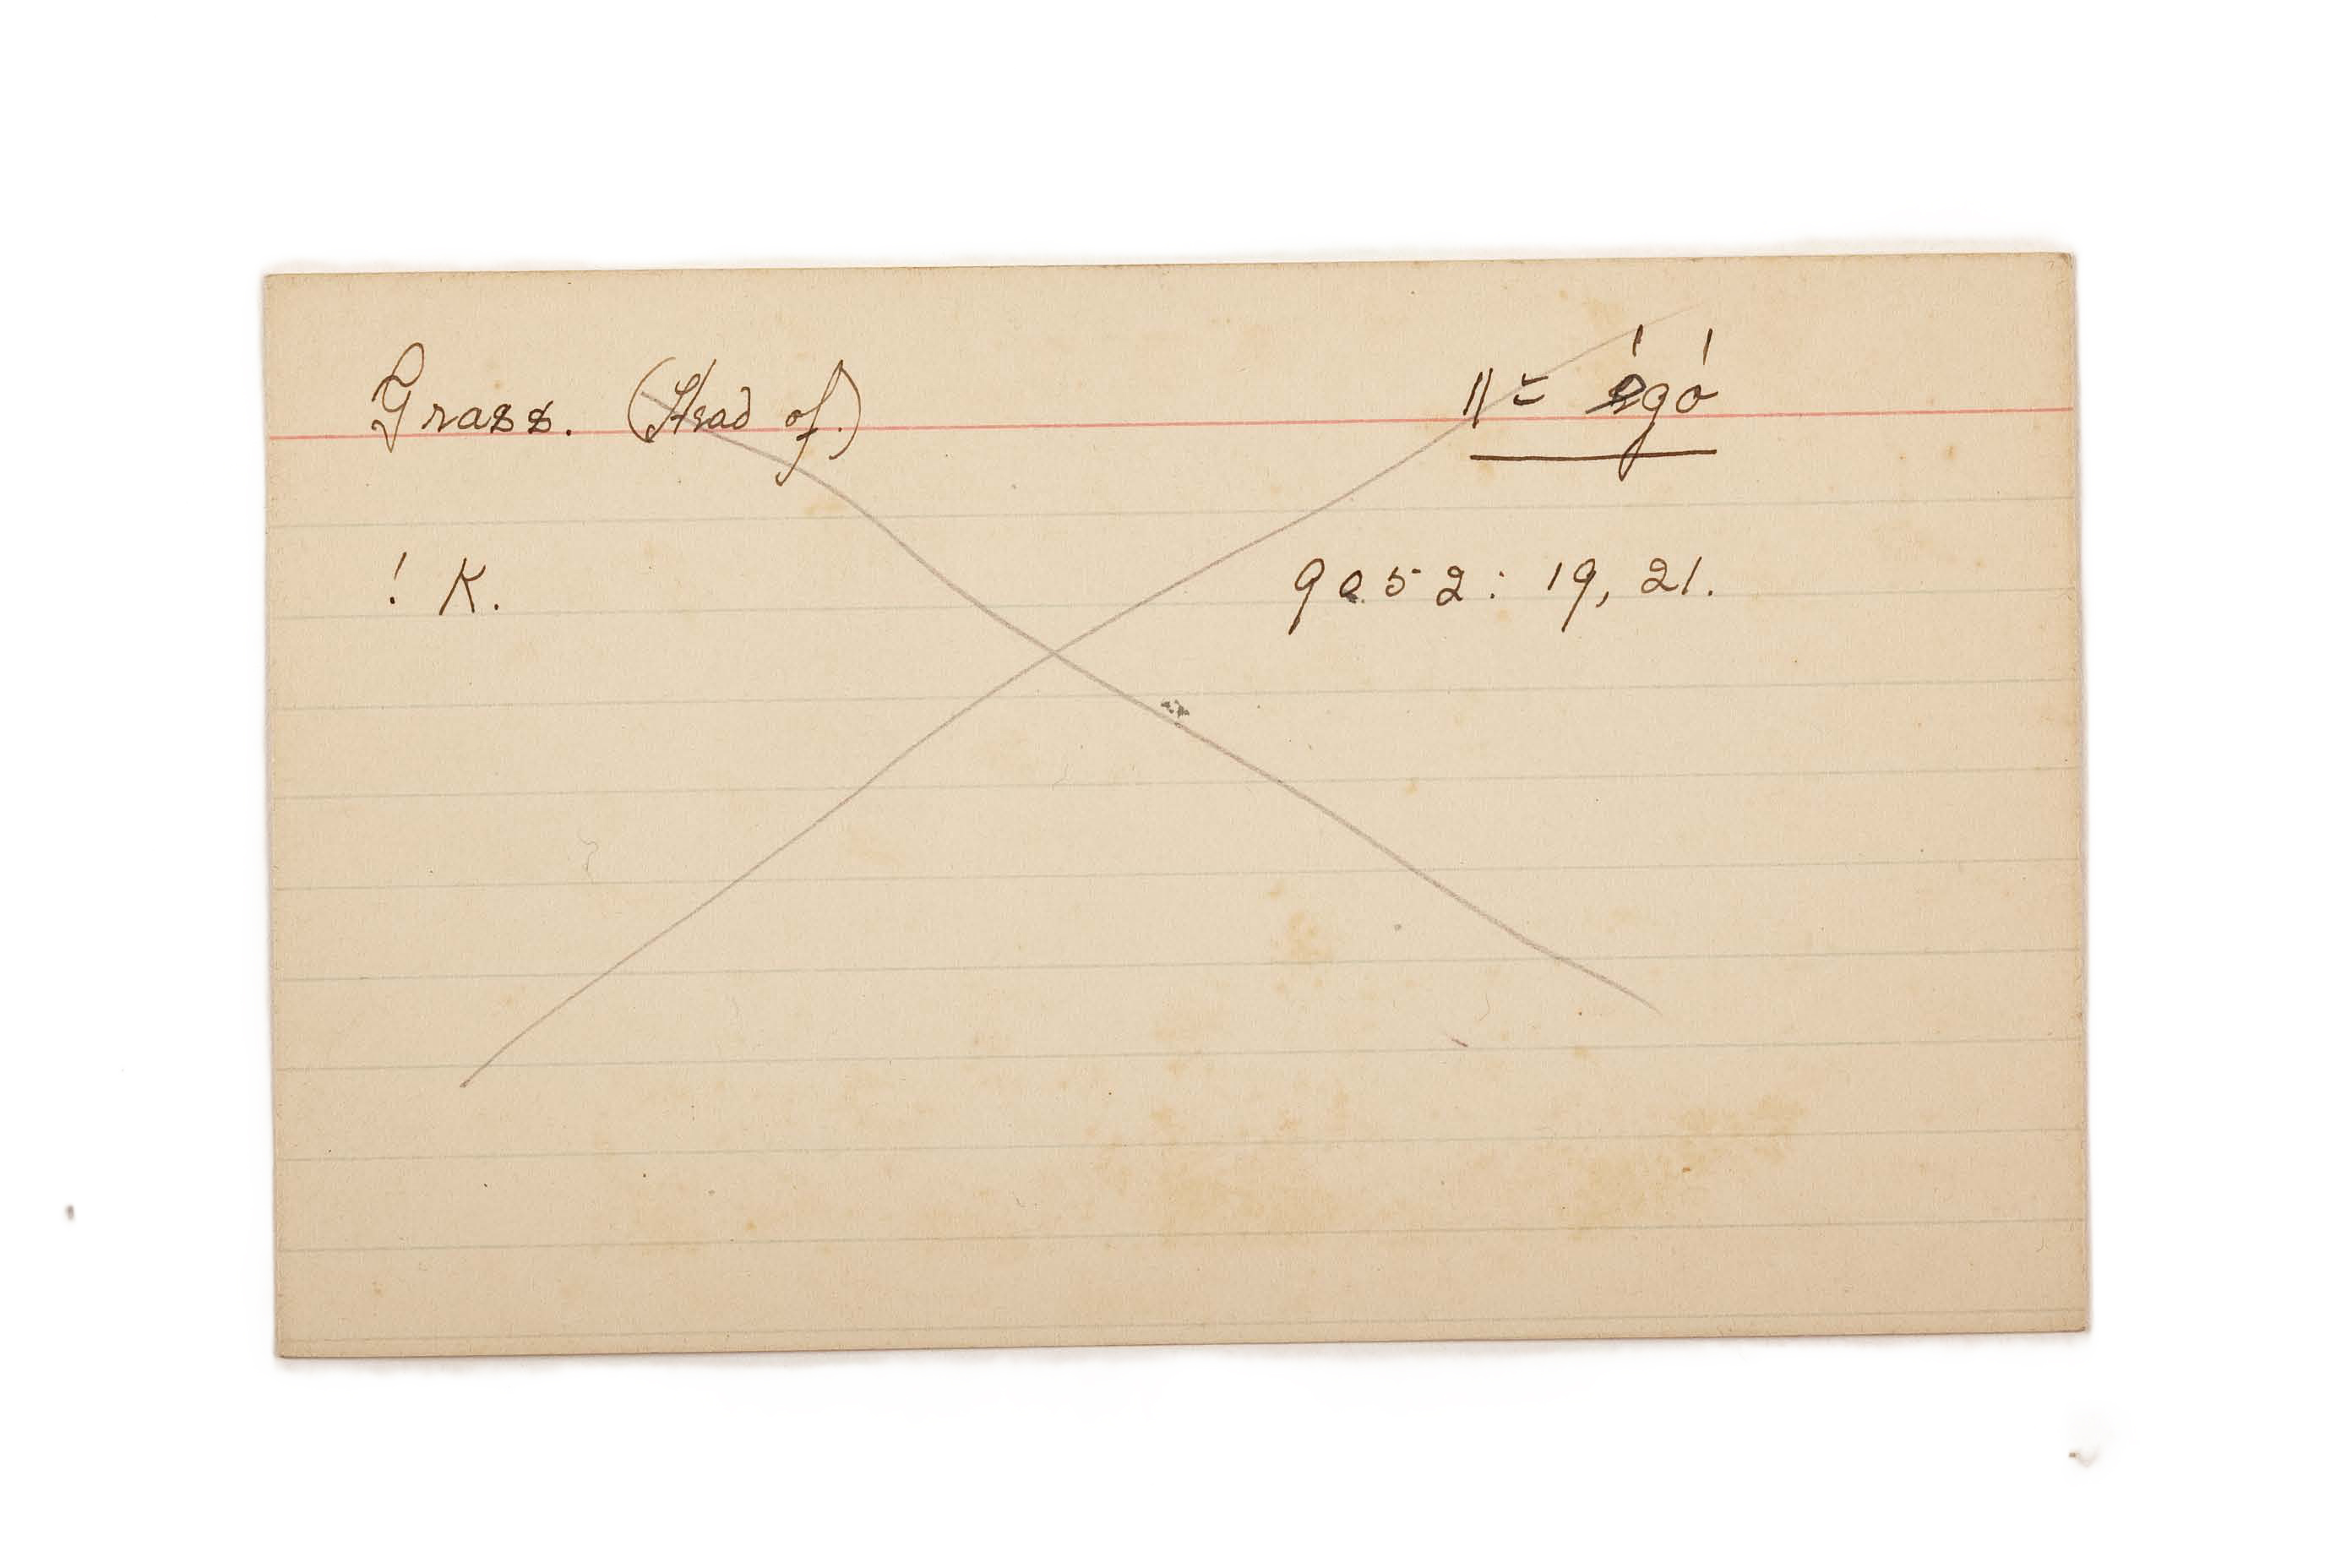 Grass. (Head of.) ǁ῀ égó
! K. 9052: 19, 21.